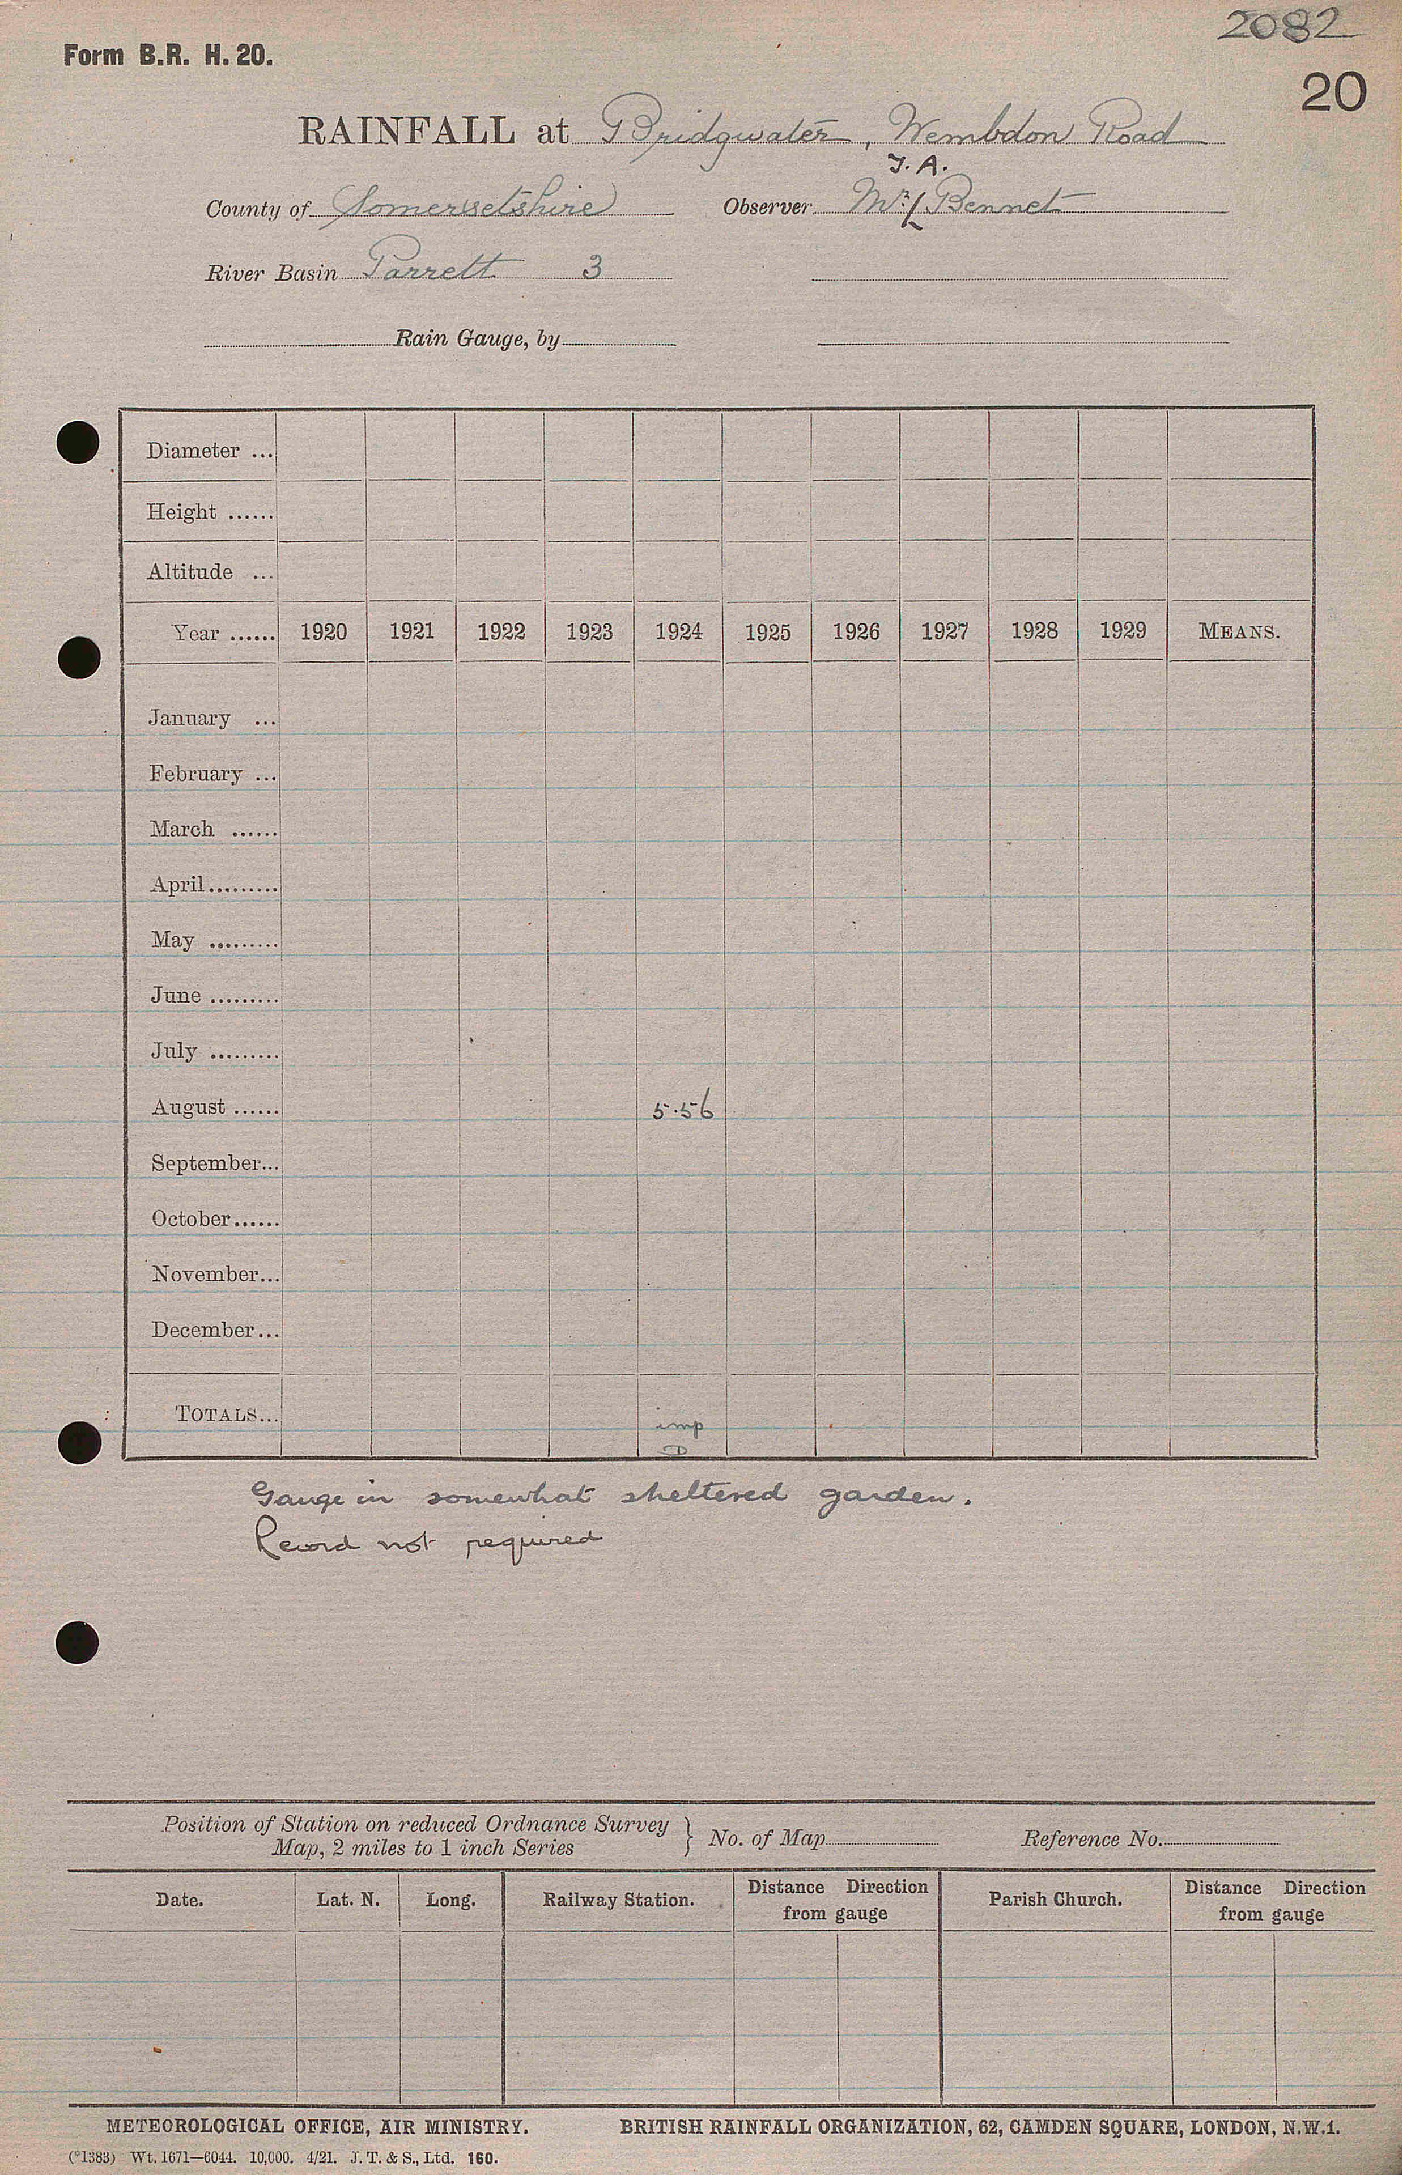 2082
Form B.R. H. 20.
20
RAINFALL at Bridgwater, Wembdon Road
J. A.
County of Somersetshire Observer Mr. Bennet
River Basin Parrett 3
Rain Gauge, by
Diameter ...
Height ......
Altitude ...
Year ...... 1920 1921 1922 1923 1924 1925 1926 1927 1928 1929 MEANS.
January ...
February ...
March ......
April.........
May .........
June .........
July .........
August ...... 5.56
September...
October......
November...
December...
TOTALS... imp
D
Gauge in somewhat sheltered garden.
Record not required
Position of Station on reduced Ordnance Survey
Map, 2 miles to 1 inch Series } No. of Map Reference No.
Date. Lat. N. Long. Railway Station. Distance Direction from gauge Parish Church. Distance Direction from gauge
METEOROLOGICAL OFFICE, AIR MINISTRY. BRITISH RAINFALL ORGANIZATION, 62, CAMDEN SQUARE, LONDON, N.W.1.
(*1383) Wt. 1671—6044. 10,000. 4/21. J. T. & S., Ltd. 160.